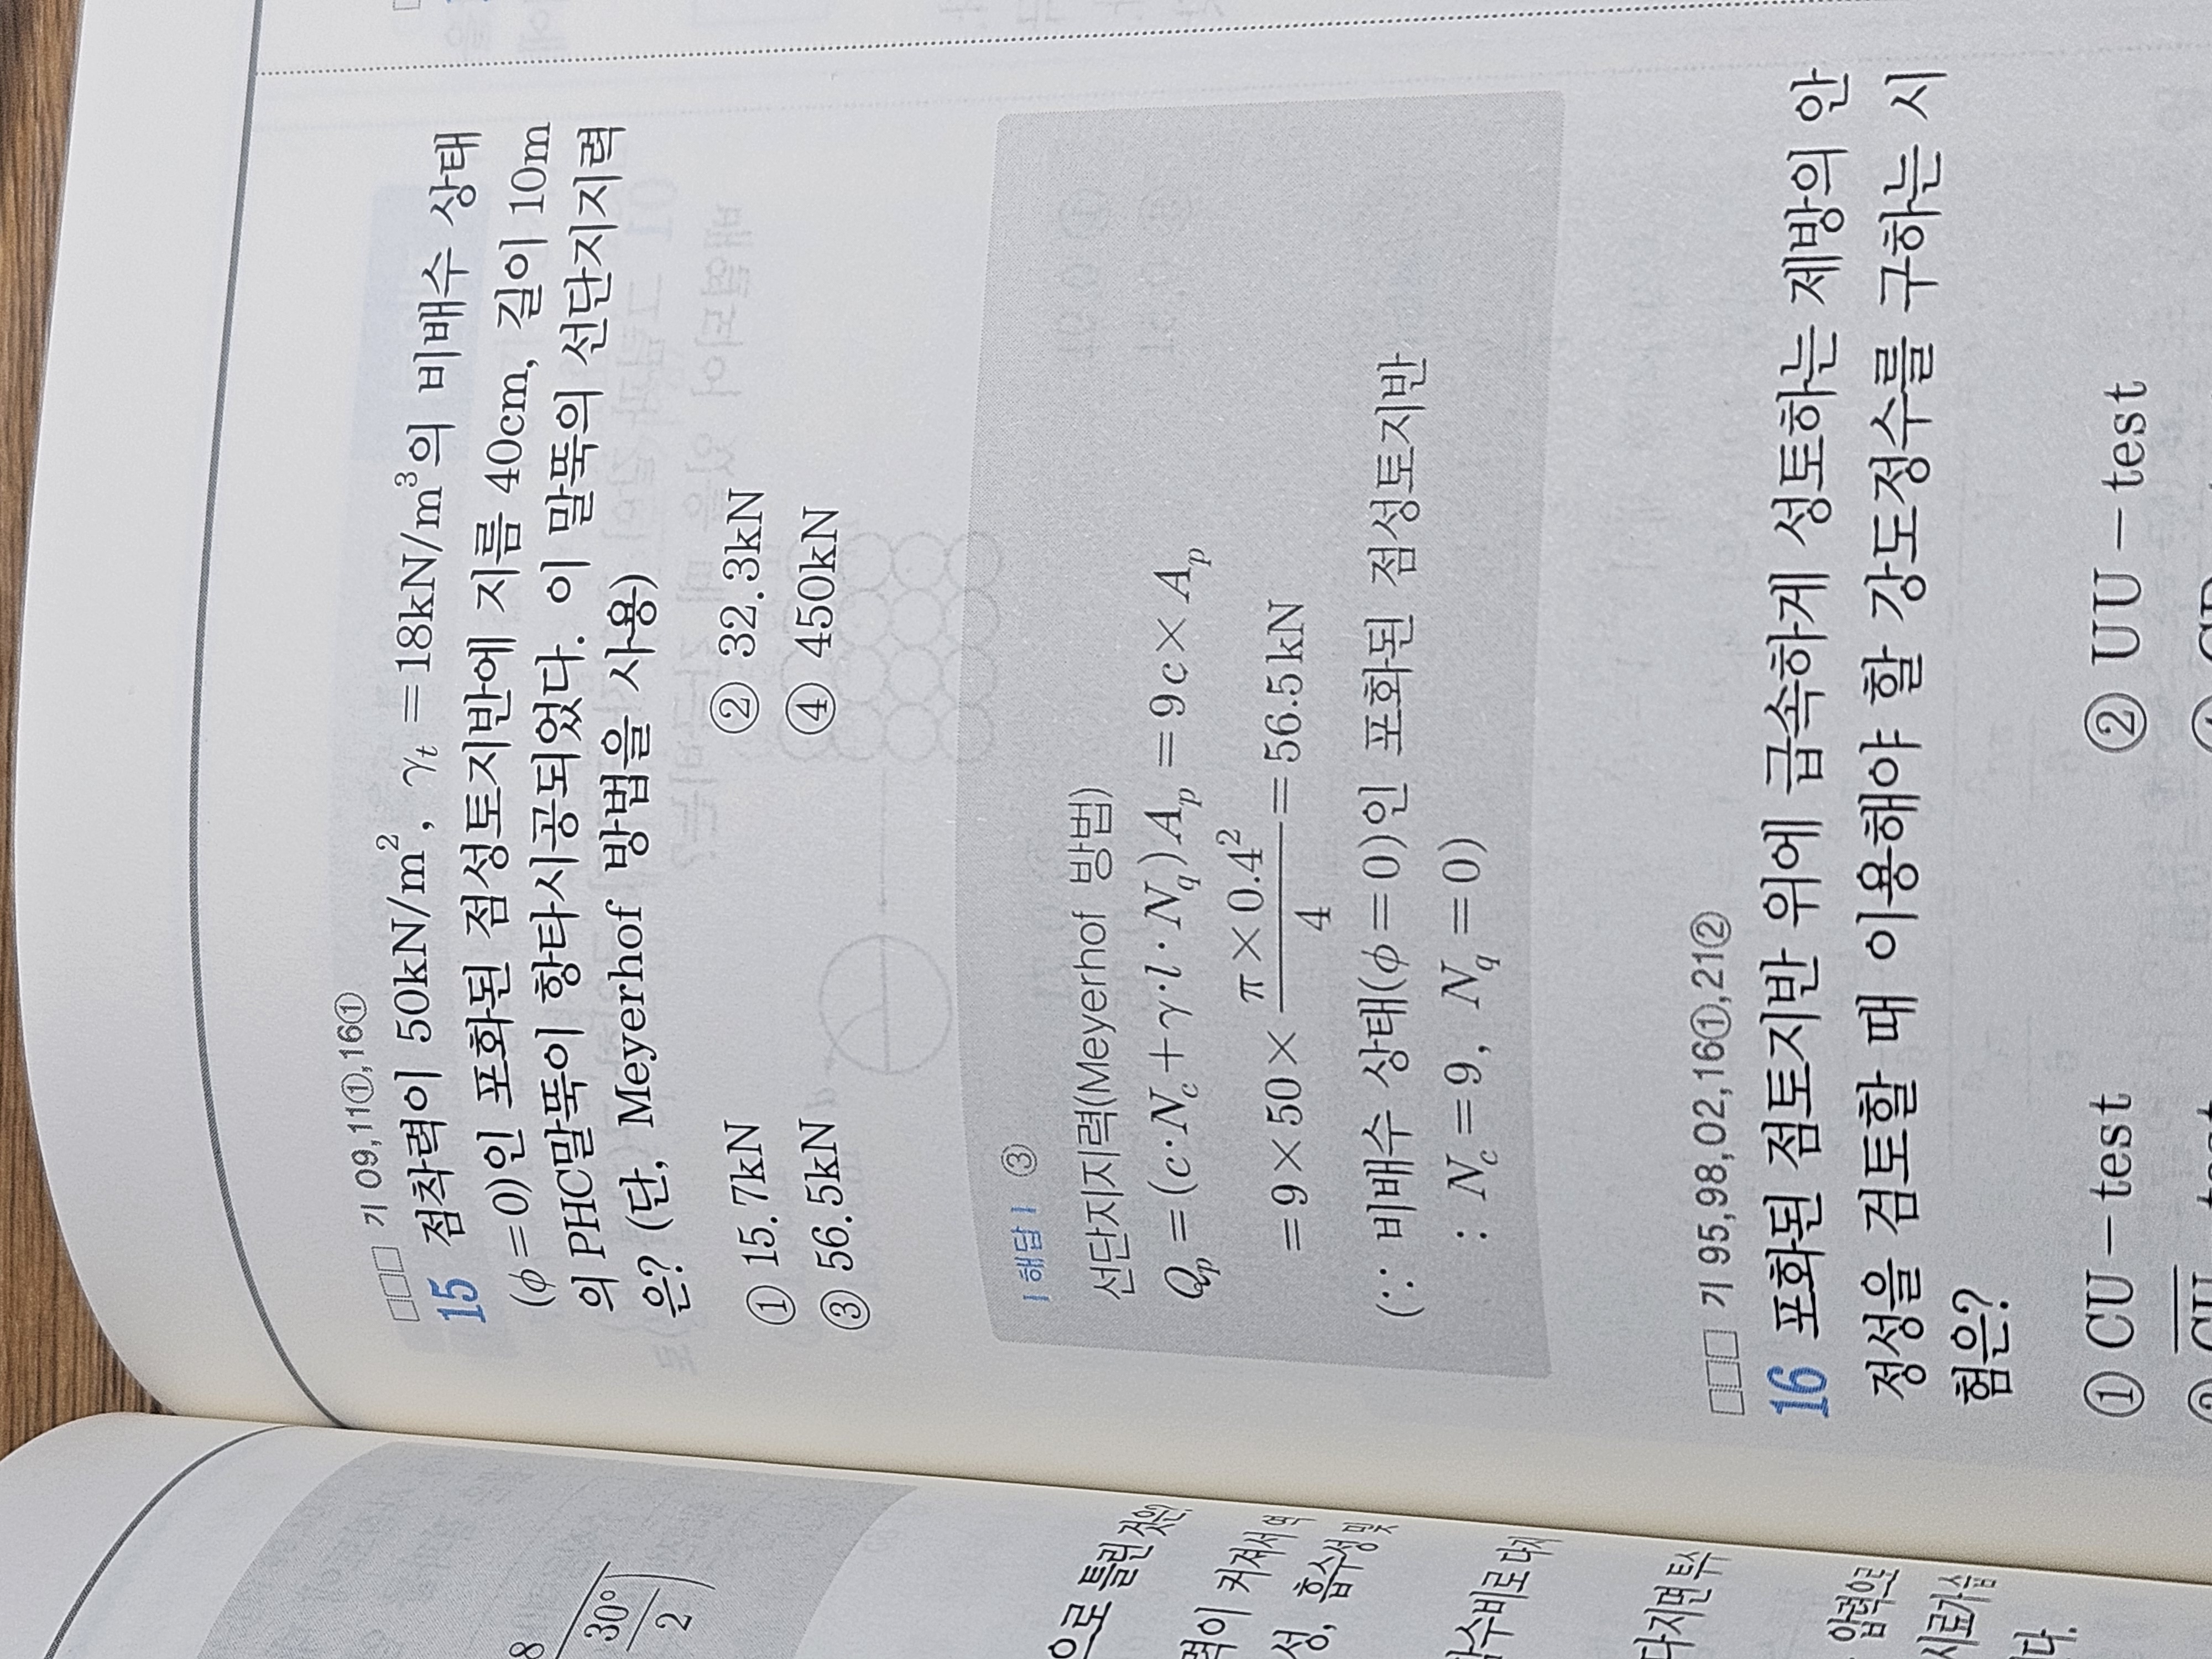 □□□ 기 09,11①,16①
15 점착력이 50kN/m², γt = 18kN/m³의 비배수 상태
(φ = 0)인 포화된 점성토지반에 지름 40cm, 길이 10m
의 PHC말뚝이 항타시공되었다. 이 말뚝의 선단지지력
은? (단, Meyerhof 방법을 사용)
① 15.7kN ② 32.3kN
③ 56.5kN ④ 450kN
| 해답 | ③
선단지지력(Meyerhof 방법)
Qp = (c·Nc + γ·l·Nq)Ap = 9c × Ap
= 9 × 50 × π × 0.4² / 4 = 56.5kN
(∵ 비배수 상태(φ = 0)인 포화된 점성토지반
: Nc = 9, Nq = 0)
□□□ 기 95,98,02,16①,21②
16 포화된 점토지반 위에 급속하게 성토하는 제방의 안
정성을 검토할 때 이용해야 할 강도정수를 구하는 시
험은?
① CU - test ② UU - test
30° / 2
8
으로 틀린 것은?
력이 커져서
성, 흡수성 및
함수비로 다져
다지면 투수
압력으로
시료가
다.